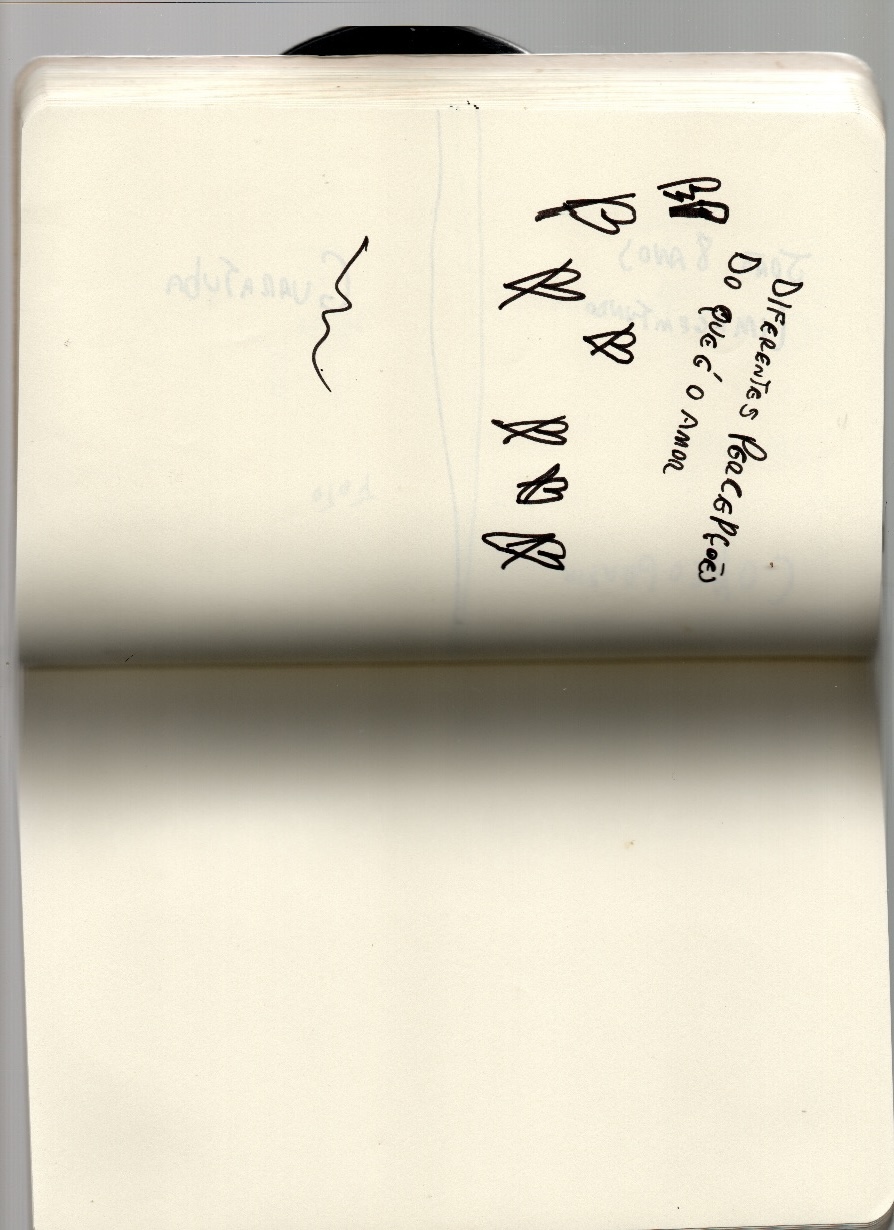 DIFERENTES PERCEPÇÕES
DO QUE É O AMOR